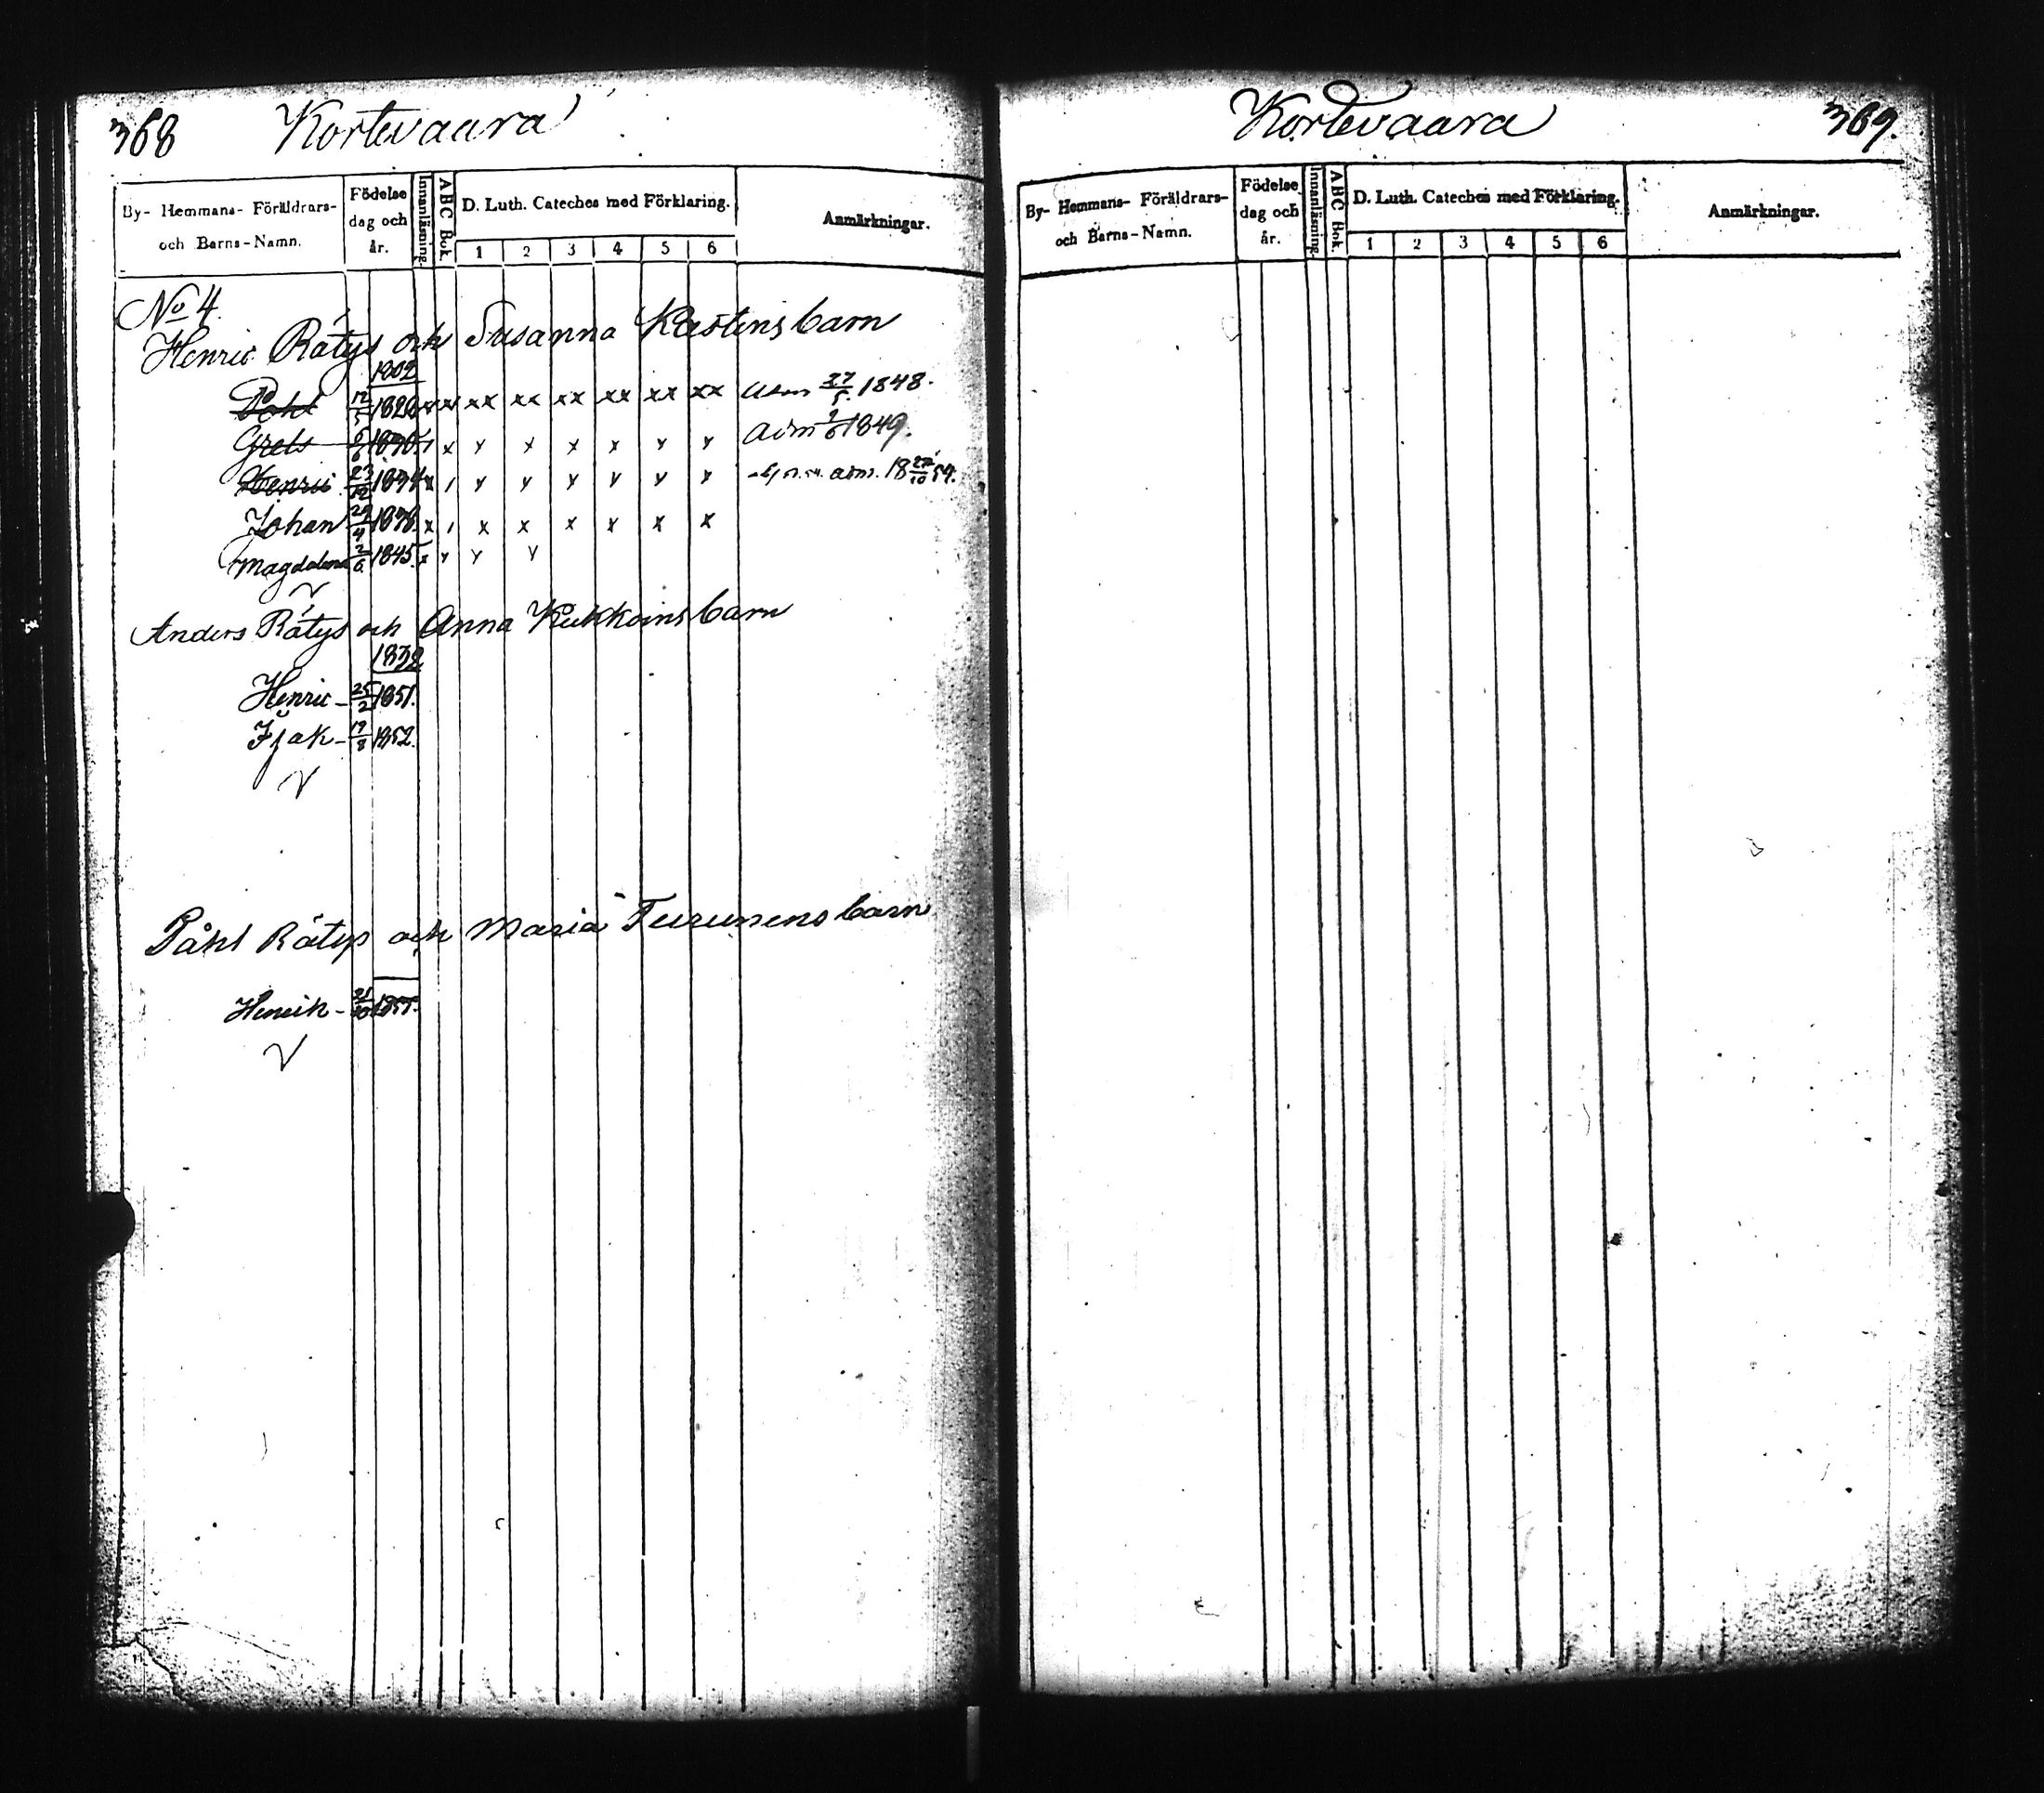 368 Kortevaara
By- Hemmans- Föräldrars- och Barns-Namn. Födelse dag och år. Innanläsning. ABC Bok. D. Luth. Cateches med Förklaring. Anmärkningar.
1 2 3 4 5 6
No 4.
Henric Rätys och Susanna Kästens barn
1802
Påhl 12/5 1828 xx xx xx xx xx xx xx xx Adm 27/5 1848.
Grets 1830 x x y x x x y y Adm 1849.
Henric 23/12 1834 x y y y y y x adm. 18 27/10 54.
Johan 29/4 1838 x x x x x x x
Magdalena 2/6 1845. x y y y
Anders Rätys och Anna Kukkoins barn
1832
Henric - 25/2 1851.
Isak - 19/8 1852.
Påhl Rätys och Maria Turunens barn
Henrik - 1855.
Kortevaara 369.
By- Hemmans- Föräldrars- och Barns-Namn. Födelse dag och år. Innanläsning. ABC Bok. D. Luth. Cateches med Förklaring. Anmärkningar.
1 2 3 4 5 6